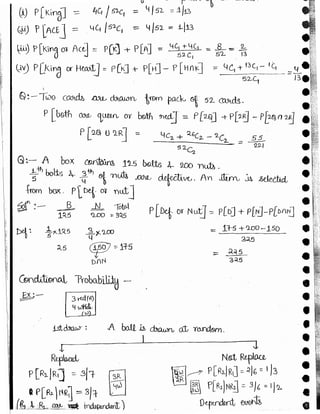 (i) P[King] = 4C₁ / 52C₁ = 4/52 = 1/13
(ii) P[ACE] = 4C₁ / 52C₁ = 4/52 = 1/13
(iii) P[King or Ace] = P[K] + P[A] = 4C₁ + 4C₁ / 52C₁ = 8/52 = 2/13
(iv) P[King or Heart] = P[K] + P[H] - P[H∩K] = 4C₁ + 13C₁ - 1C₁ / 52C₁ = 4/13
Q:- Two cards are drawn from pack of 52 cards.
P[both are queen or both red] = P[2Q] + P[2R] - P[2Q∩2R]
P[2Q ∪ 2R] = 4C₂ + 26C₂ - 2C₂ / 52C₂ = 55/221
Q:- A box contains 125 bolts & 200 nuts.
1/5 th bolts & 3/4 th of nuts are defective. An item is selected
from box. P[Def or nut]
Sol? :- B N Total
125 200 = 325
P[Def or Nut] = P[D] + P[N] - P[D∩N]
Def: 1/5 × 125 3/4 × 200
= 175 + 200 - 150 / 325
25 150 = 175
D∩N
= 225 / 325
Conditional Probability -
Ex:-
3 red (R)
4 white (W)
1st draw : A ball is drawn at random.
Replaced Not Replace
P[R₂|R₁] = 3/7 3R 4W
4W 2R P[R₂|R₁] = 2/6 = 1/3
& P[R₂|NR₁] = 3/7
3R 3W P[R₂|NR₁] = 3/6 = 1/2
(R₁ & R₂ are independent)
Dependent events